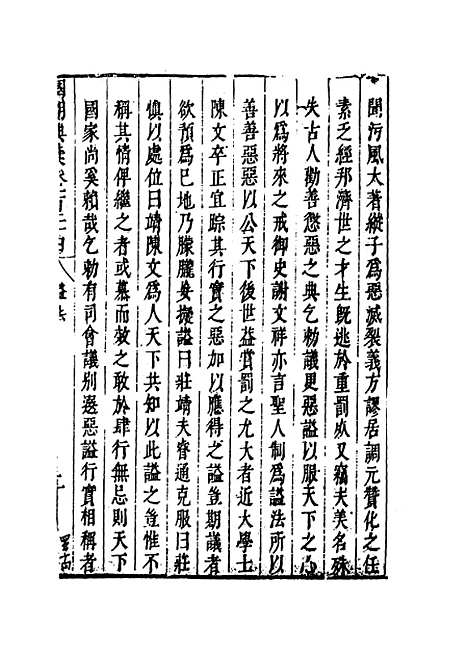 聞污風大著縱子為惡滅裂義方謬居調元贊化之任
素乏經邦濟世之才生既逃於重罰歿又竊夫美名殊
失古人勸善懲惡之典乞勅議更惡謚以服天下之心
以為將來之戒御史謝文祥亦言聖人制為謚法所以
善善惡惡以公天下後世葢賞罰之尤大者近大學士
陳文卒正宜踪其行實之惡加以應得之謚豈期議者
欲預為巳地乃朦朧妄擬謚曰莊靖夫睿通克服曰莊
慎以處位曰靖陳文為人天下共知以此謚之豈惟不
稱其情俾繼之者或慕而效之敢於肆行無忌則天下
國家尚奚賴哉乞勅有司會議別選惡謚行實相稱者
國朝典彚卷一百二十四 謚法